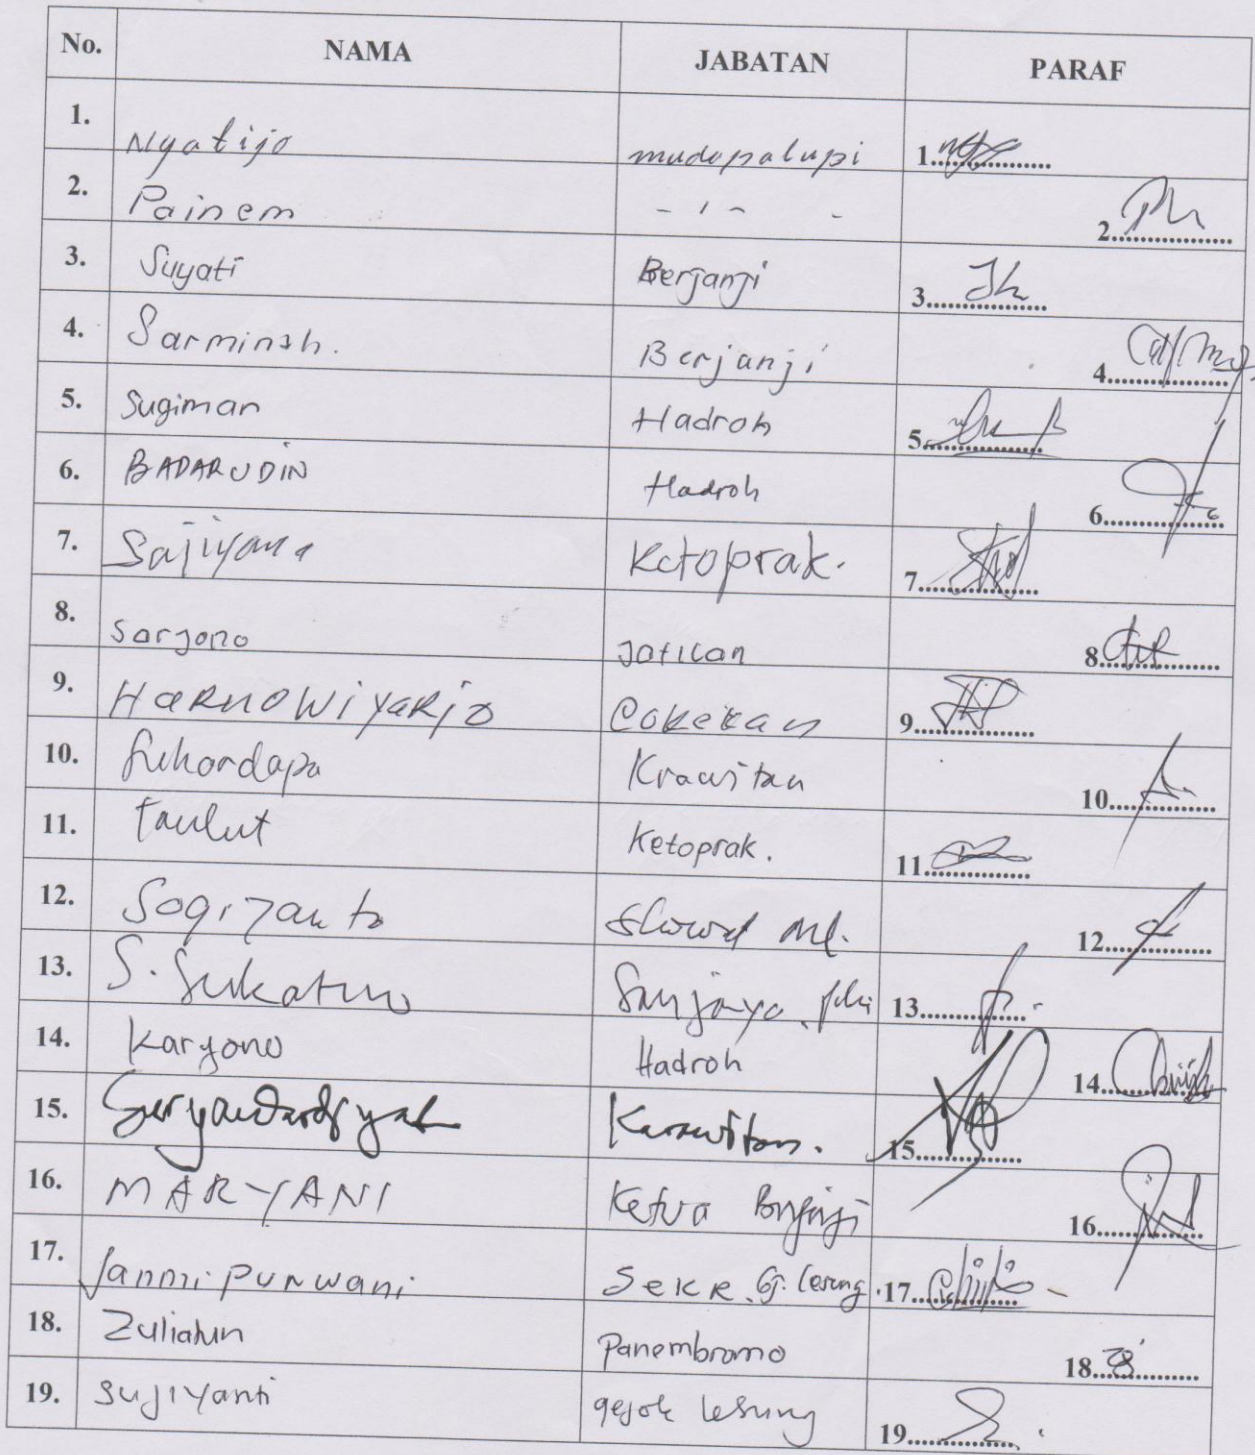 No. NAMA JABATAN PARAF
1. Nyatijo mudopalupi 1..............
2. Painem - 1 - - 2..............
3. Suyati Berjanji 3..............
4. Sarminah. Berjanji 4..............
5. Sugiman Hadroh 5..............
6. BADARUDIN Hadroh 6..............
7. Sajiyana Ketoprak. 7..............
8. Sarjono Jatilan 8..............
9. HARNOWIYARJO Cokekan 9..............
10. Krawitan 10..............
11. Ketoprak. 11..............
12. Sogiyanto 12..............
13. S. Sukatno Sanjaya 13..............
14. Karyono Hadroh 14..............
15. Karawitan. 15..............
16. MARYANI Ketua Brjanji 16..............
17. PURWANI SEKR. Gj. Lesung 17..............
18. Zuliatun Panembromo 18..............
19. Sujiyanti gejok lesung 19..............